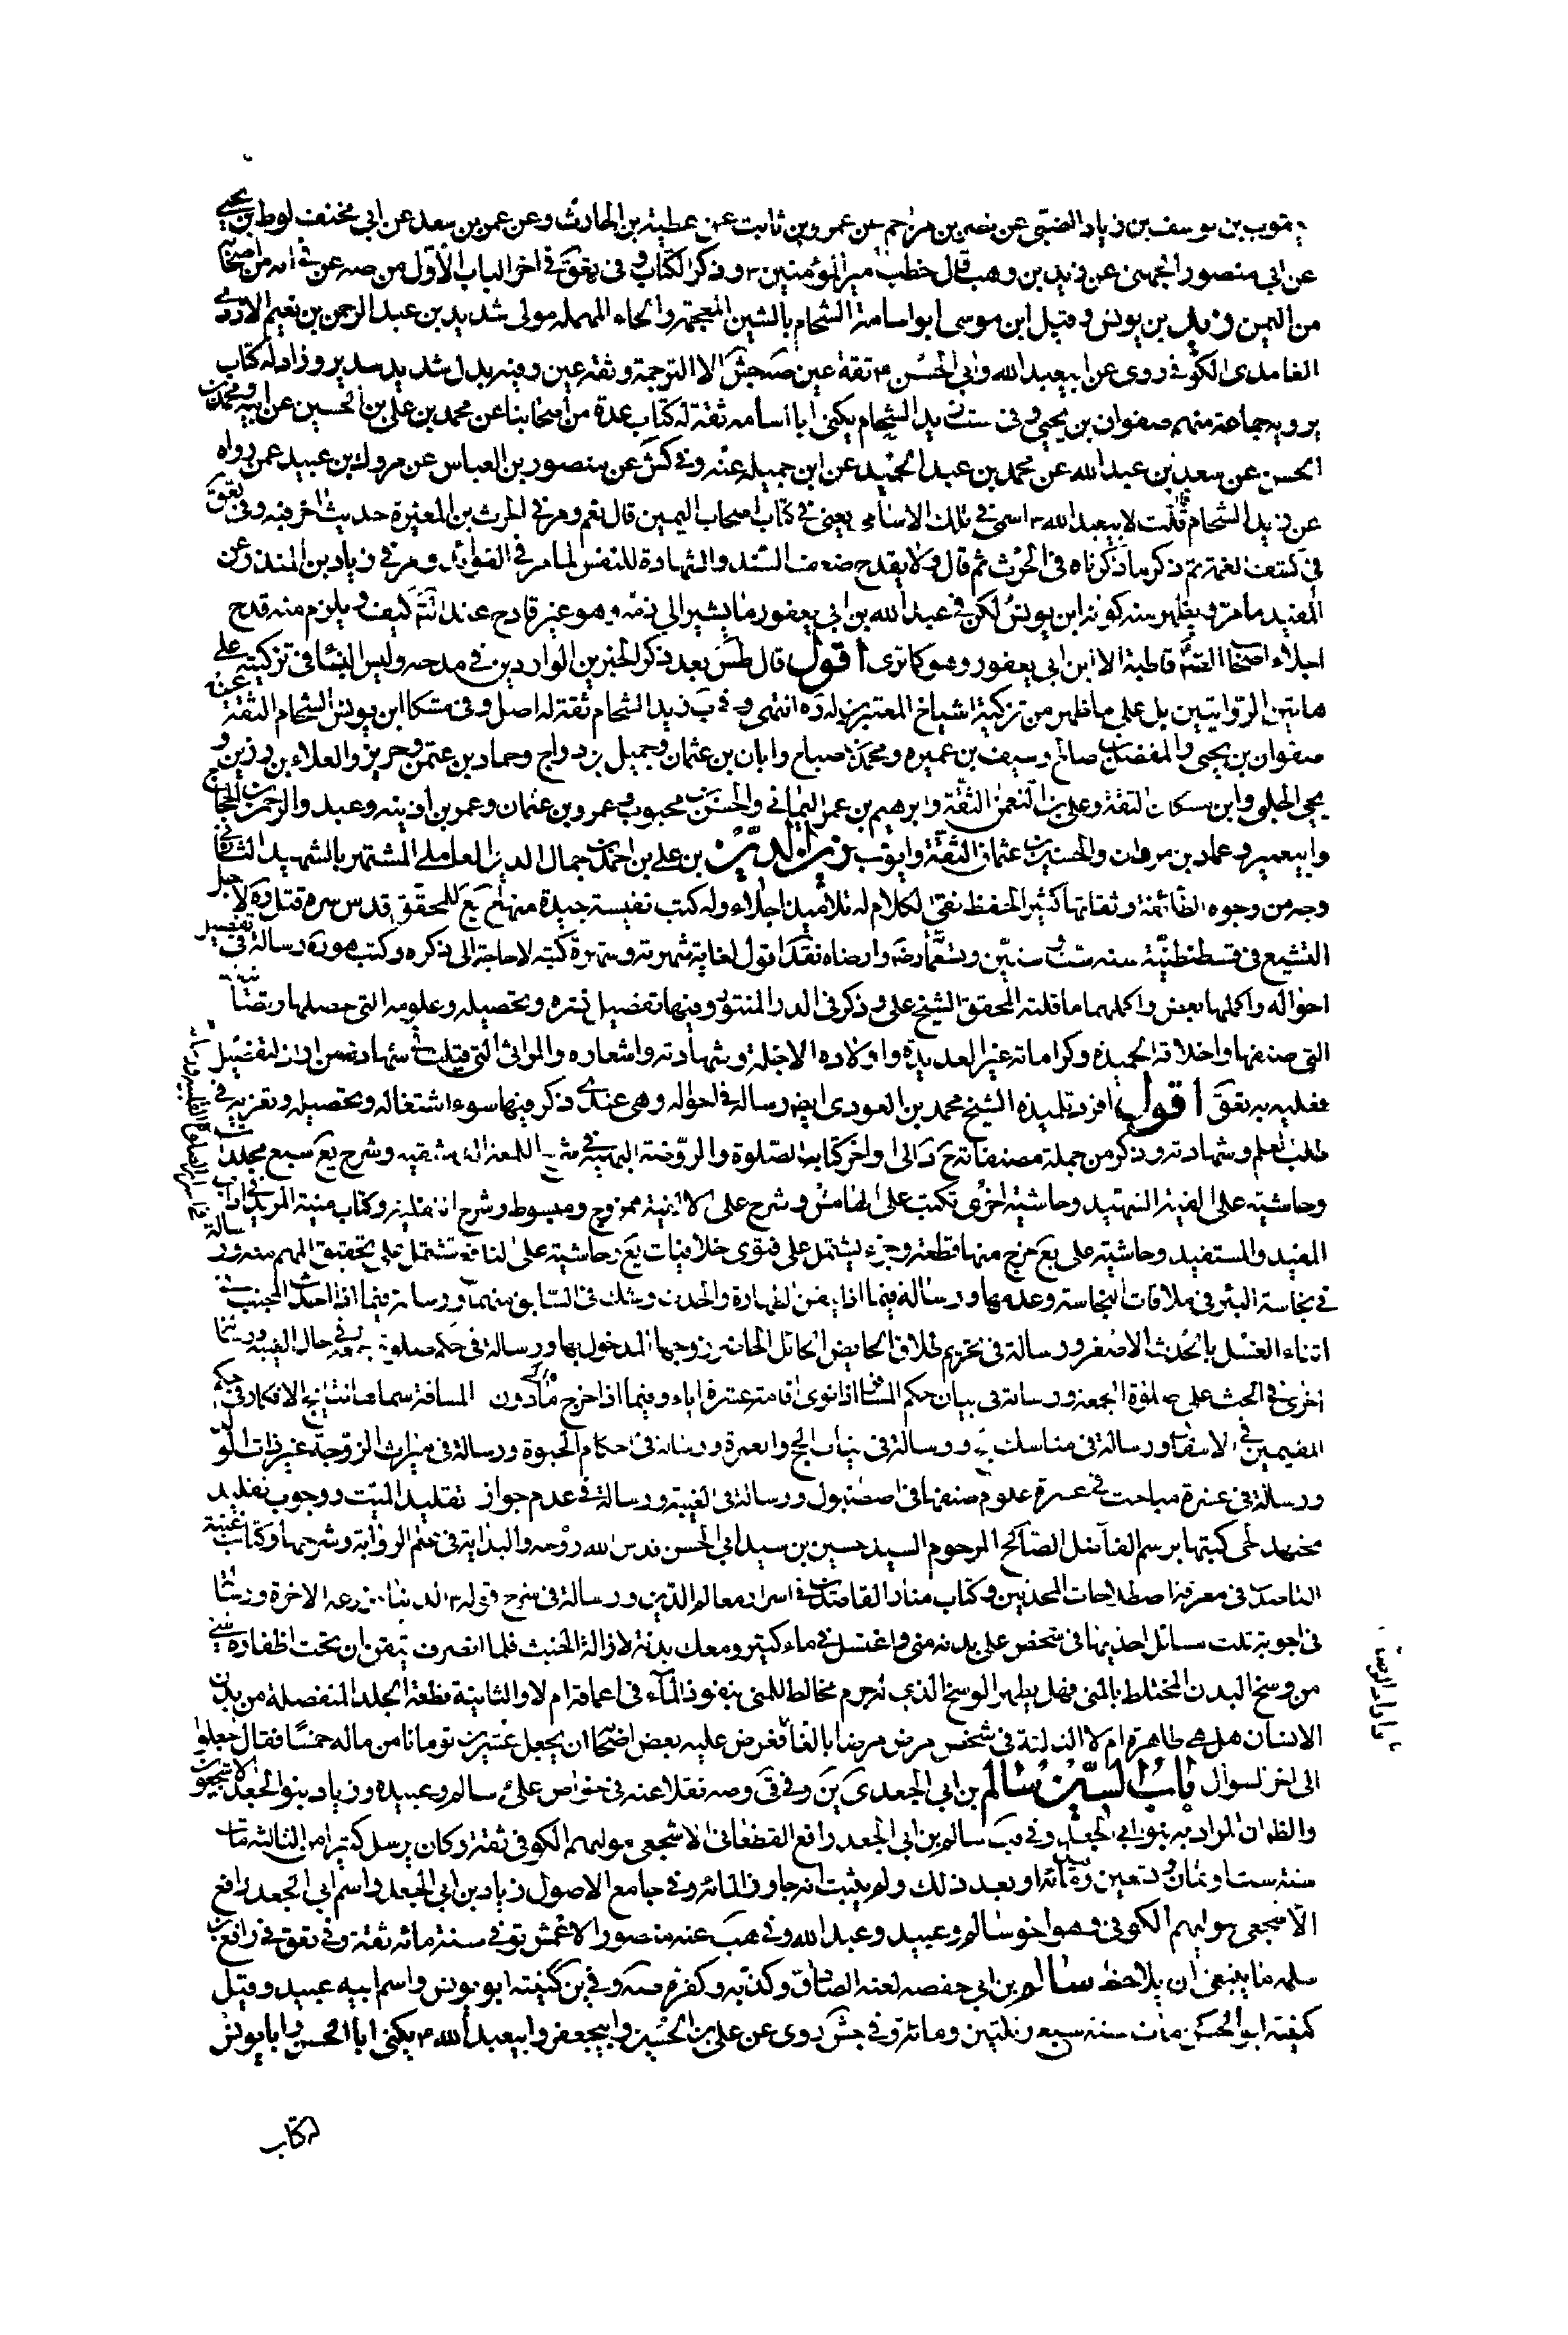 يعقوب بن يوسف بن زياد الضبّي عن نصر بن مزاحم عن عمرو بن ثابت عن عطية بن الحارث وعن عمر بن سعد عن ابي مخنف لوط بن يحيى
عن ابي منصور الجهني عن زيد بن وهب قال خطب امير المؤمنين ٢ وذكر الكتاب وفي تعق في اخر الباب الأول من صه عن قي انه من اصحابنا
من اليمن وزيد بن يونس وقيل ابن موسى ابو اسامة الشحام بالشين المعجمة والحاء المهملة مولى شديد بن عبد الرحمن بن نعيم الازدي
الغامدي الكوفي روى عن ابيعبد الله وابي الحسن ٢ ثقة عين صه جش الا الترجمة وثقة عين وفيه بدل شديد سدير وزاد له كتاب
يرويه جماعة منهم صفوان بن يحيى وفي ست زيد الشحام يكنى ابا اسامه ثقة له كتاب عدة من أصحابنا عن محمد بن علي بن الحسين عن ابيه ومحمد بن
الحسن عن سعد بن عبد الله عن محمد بن عبد الحميد عن ابن جميله عنه وفي كش عن منصور بن العباس عن مروك بن عبيد عمن رواه
عن زيد الشحام قال قلت لابيعبد الله ٢ اسمي في تلك الاسامي يعني في كتاب اصحاب اليمين قال نعم ومر في الحرث بن المغيرة حديث اخر فيه وفي تعق
في كشف الغمة ثم ذكر ما ذكرناه في الحرث ثم قال ولا يقدح ضعف السند والشهادة للنفس لما مر في الفوائد ومر في زياد بن المنذر عن
المفيد ما مر ويظهر منه كونه ابن يونس لكن في عبد الله بن ابي يعفور ما يشير الى ذمه وهو غير قادح عند التأمل كيف ويلزم منه قدح
اجلاء اصحابنا الثقة قاطبة الا ابن ابي يعفور وهو كما ترى أقول قال طس بعد ذكر الخبرين الواردين في مدحه وليس البناء في تزكيته على
هاتين الروايتين بل على ما ظهر من تزكية اشياخ المعتبرين له ره انتهى وفي ب زيد الشحام ثقة له اصل وفي مشكا ابن يونس الشحام الثقة عنه
صفوان بن يحيى والمفضل بن صالح وسيف بن عميره ومحمد بن صباح وابان بن عثمان وجميل بن دراج وحماد بن عثمن وحريز والعلاء بن رزين و
يحيى الحلبي وابن مسكان الثقة وعلي بن النعمن الثقة وابرهيم بن عمر اليماني والحسن بن محبوب وعمرو بن عثمان وعمر بن اذينه وعبد الرحمن بن الحجاج
وابيعمير وعماد بن مروان والحسين بن عثمان الثقة وايوب زين الدين بن علي بن احمد بن جمال الدين العاملي المشتهر بالشهيد الثاني
وجه من وجوه الطائفة وثقاتها كثير الحفظ نقي الكلام له تلاميذ اجلاء وله كتب نفيسة جيدة منها شرح يع للمحقق قدس سره قتل ره لاجل
التشيع في قسطنطنية سنه ست وستين وتسعمائة وارضاه نقد اقول لغاية شهرته وشهرة كتبه لا حاجة الى ذكره وكتب هو ره رسالة في تفصيل
احواله واكملها بعض واكملهما ما نقله المحقق الشيخ علي وذكر في الدر المنثور وفيها تفصيل نشوه وتحصيله وعلومه التي حصلها وتصانيفه
التي صنفها واخلاقه الحميدة وكراماته غير العديدة واولاده الاجلة وشهادته واشعاره والمراثي التي قيلت في شهادته فمن اراد التفصيل
فعليه به تعق أقول افرد تلميذه الشيخ محمد بن العودي ايضا رسالة في احواله وهي عندي ذكر فيها سوء اشتغاله وتحصيله وتغربه في
طلب العلم وشهادته وذكر من جملة مصنفاته ح د الى اواخر كتاب الصلوة والروضة البهية في شرح اللمعة الدمشقيه وشرح يع سبع مجلدات
وحاشية على الفية الشهيد وحاشية اخرى تكتب على الهامش وشرح على الالفية ممزوج ومبسوط وشرح النفلية وكتاب منية المريد في اداب
المفيد والمستفيد وحاشية على يع خرج منها قطعة وجزء يشتمل على فتوى خلافيات يع وحاشية على النافع تشتمل على تحقيق المهم منه ورسالة
في نجاسة البئر في ملاقات النجاسة وعدمها ورسالة فيما اذا تيقن الطهارة والحدث وشك في السابق منهما ورسالة فيما اذا احدث المجنب في
اثناء الغسل بالحدث الاصغر ورسالة في تحريم طلاق الحايض الحائل الحاضر زوجها المدخول بها ورسالة في حكم صلوة جمعة في حال الغيبه ورسالة
اخرى في الحث على صلوة الجمعة ورسالة في بيان حكم المسافر اذا نوى اقامة عشرة ايام وفيما اذا خرج الى ما دون المسافة سماها نتايج الافكار في حكم
المقيمين في الاسفار ورسالة في مناسك الحج ورسالة في نيات الحج والعمرة ورسالة في احكام الحبوة ورسالة في ميراث الزوجة غير ذات الولد
ورسالة في عشرة مباحث في عشرة علوم صنفها في اصطنبول ورسالة في الغيبة ورسالة في عدم جواز تقليد الميت ووجوب تقليد
مجتهد حي كتبها برسم الفاضل الصالح المرحوم السيد حسين بن سيد ابي الحسن قدس الله روحه والبداية في علم الرواية وشرحها وكتاب غنية
القاصدين في معرفة اصطلاحات المحدثين وكتاب منار القاصدين في اسرار معالم الدين ورسالة في شرح قوله ٢ الدنيا مزرعة الاخرة ورسالة
في اجوبة ثلث مسائل احديها في شخص على بدنه مني واغتسل في ماء كثير ومعك بدنه لازالة الخبث فلما انصرف تيقن ان تحت اظفاره شيء
من وسخ البدن المختلط بالمني فهل يطهر الوسخ الذي له جرم مخالط للمني بنفوذ الماء في اعماقه ام لا والثانية قطعة الجلد المنفصلة من بدن
الانسان هل هي طاهرة ام لا الثالثة في شخص مرض مرضا بالغا فعرض عليه بعض اصحابنا ان يجعل عشرين تومانا من ماله خمسا فقال اجعلوا
الى اخر السؤال باب السين سالم بن ابي الجعد ى ين وفي قي وصه نقلا عنه في خواص علي ٢ سالم وعبيده وزياد بنو الجعد الاشجعيون
والظ ان المراد به بنو ابي الجعد وفي قب سالم بن ابي الجعد رافع الغطفاني الاشجعي مولاهم الكوفي ثقة وكان يرسل كثيرا من الثالثة مات
سنة ست او ثمان وتسعين وقيل مائة او بعد ذلك ولم يثبت انه جاوز المائة وفي جامع الاصول زياد بن ابي الجعد واسم ابي الجعد رافع
الاشجعي مولاهم الكوفي وهو اخو سالم وعبيد وعبد الله وفي هب عنه منصور الاعمش توفي سنة مائه ثقة وفي تعق في رافع بن
سلمه ما ينبغي ان يلاحظ سالم بن ابي حفصه لعنه الصادق وكذبه وكفره صه وفي قر كنيته ابو يونس واسم ابيه عبيد وقيل
كنيته ابو الحسن مات سنة سبع وثلثين ومائة وفي جش روى عن علي بن الحسين وابيجعفر وابيعبد الله ٢ يكنى ابا الحسن وابا يونس
له كتاب